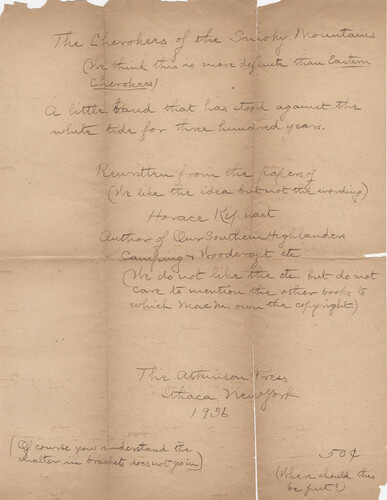 The Cherokees of the Smoky Mountains
(We think this is more definite than Eastern
Cherokees)
A little band that has stood against the
white tide for three hundred years.
Rewritten from the papers of
(We like the idea but not the wording)
Horace Kephart
Author of Our Southern Highlanders
Camping & Woodcraft etc
(We do not like the etc but do not
care to mention the other books to
which MacM. own the copyright)
The Atkinson Press
Ithaca New York
1936
(Of course you understand the
matter in brackets does not go in)
50¢
(Where should this
be put?)